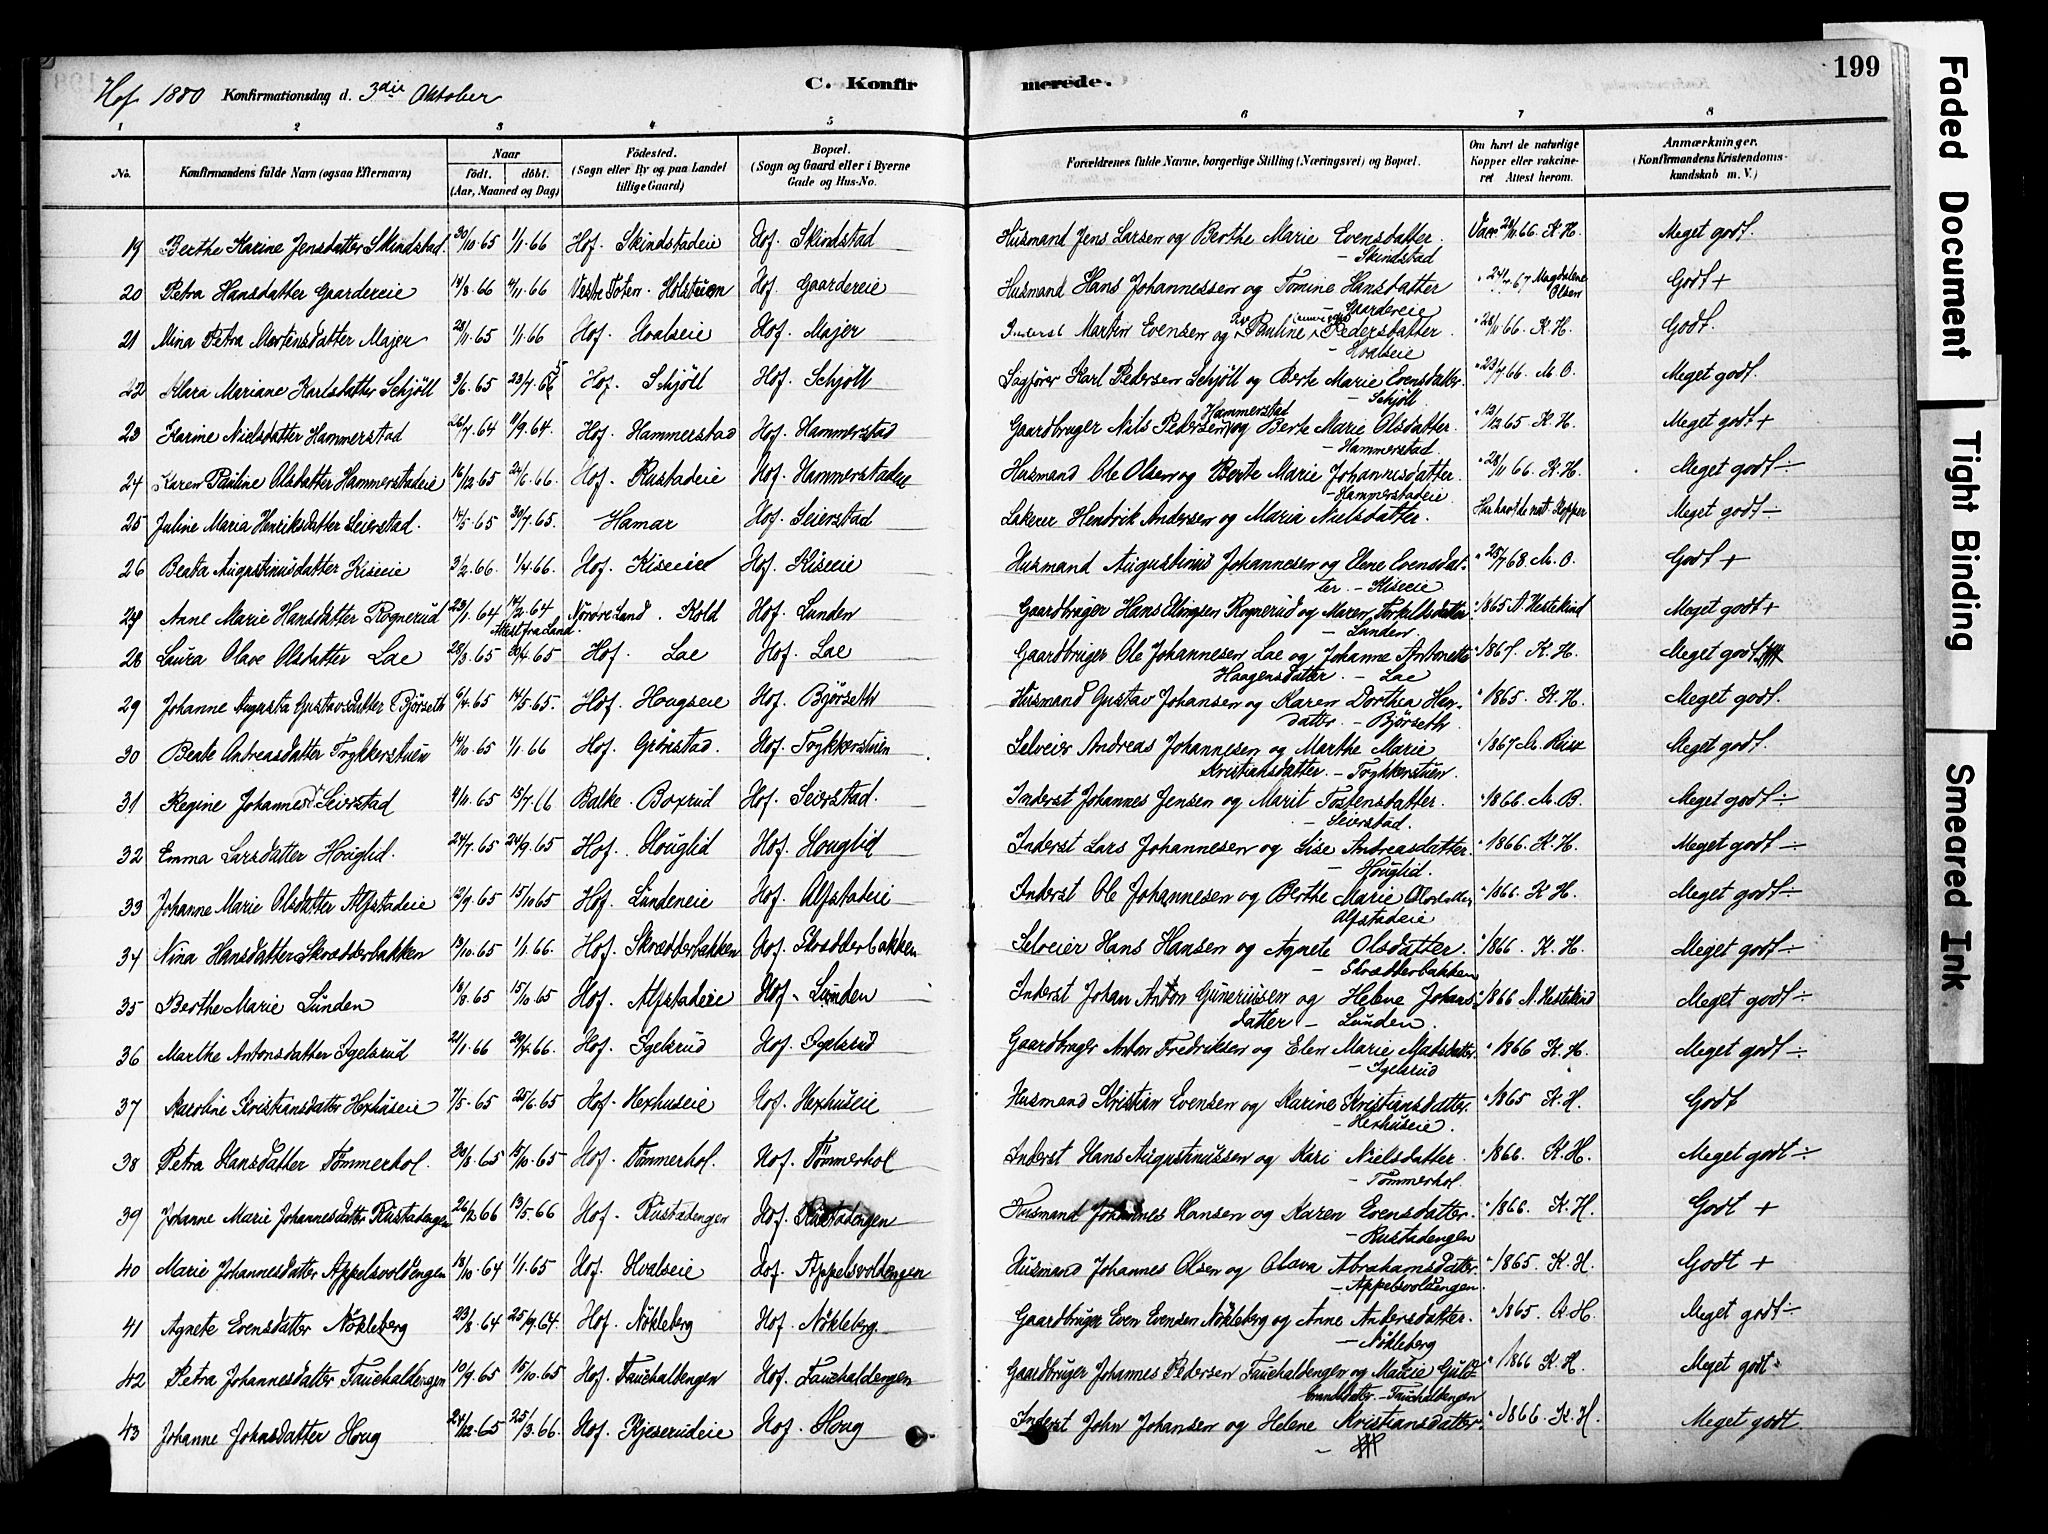 Hof 1880 Konfirmationsdag d. 3die Oktober
C. Konfir merede. 199
1 2 3 4 5 6 7 8
No. Konfirmandens fulde Navn (ogsaa Efternavn) Naar født. døbt. (Aar, Maaned og Dag) Fødested. (Sogn eller By og paa Landet tillige Gaard) Bopæl. (Sogn og Gaard eller i Byerne Gade og Hus-No. Forældrenes fulde Navne, borgerlige Stilling (Næringsvei) og Bopæl. Om havt de naturlige Kopper eller vakcineret Attest herom. Anmærkninger. (Konfirmandens Kristendomskundskab m. V.)
19 Berthe Karine Jensdatter Skindstad 30/10 65 1/1.66 Hof. Skindstadeie Hof. Skindstad Husmand Jens Larsen og Berthe Marie Evensdatter. Vacc. 66. K. H. Meget godt.
– Skindstad
20 Petra Hansdatter Gaardereie 66 66 Vestre Toten. Hof. Gaardereie Husmand Hans Johannessen og Tomine Hansdatter 67 Magdalene Olsen Godt +
– Gaardereie
21 Mina Petra Martinsdatter Majer 65 1/1.66 Hof. Hvalseie Hof. Majer Inderst Martin Evensen og Pauline Pedersdatter 66. K. H. Godt.
– Hvalseie
22 Klara Mariane Karlsdatter Schjöll 3/6.65 23/7.65 Hof. Schjöll Hof. Schjöll Sagfører Karl Pedersen Schjöll og Berte Marie Evensdatter. 23/7.66. M. O. Meget godt.
– Schjöll
23 Karine Nielsdatter Hammerstad 26/7.64 11/9.64. Hof. Hammerstad Hof. Hammerstad Gaardbruger Nils Pedersen Hammerstad og Berte Marie Olsdatter. 65 K. H. Meget godt +
– Hammerstad.
24 Karen Pauline Olsdatter Hammerstadeie 16/12 65 24/6.66. Hof. Rustadeie Hof. Hammerstadeie Husmand Ole Olsen og Berte Marie Johannesdatter. 28/11 66. K. H. Meget godt ÷
– Hammerstadeie
25 Juline Maria Henriksdatter Seierstad. 14/5.65 30/7.65. Hamar Hof. Seierstad Lakerer Hendrik Andersen og Maria Nielsdatter. Har havt de nat. Kopper Meget godt ÷
26 Beata Augustinusdatter Kiseeie 3/2.66. 1/4.66. Hof. Kiseeie Hof. Kiseeie Husmand Augustinus Johannesen og Elene Evensdatter. 25/7 68. M. O. Godt +
– Kiseeie
27 Anne Marie Hansdatter Rognerud 23/1.64 14/2.64 Nordre Land. Kold Hof. Lunden Gaardbruger Hans Rognerud og Maren Torkildsdatter 1865 Meget godt +
Attest fra Land. – Lunden
28 Laura Olave Olsdatter Lae 28/3.65 30/4.65 Hof. Lae Hof. Lae Gaardbruger Ole Johannesen Lae og Johanne Antonette 1867. K. H. Meget godt
Haagensdatter. – Lae
29 Johanne Augusta Gustavsdatter Björseth 6/4.65 14/5.65. Hof. Hougseie Hof. Björseth Husmand Gustav Johansen og Karen Dorthea Handatter 1865. K. H. Meget godt.
– Björseth
30 Beate Andreasdatter Trykkerstuen 14/10.65 1/1.66 Hof. Hof. Trykkerstuen Selveier Andreas Johannesen og Marthe Marie 1867 M. Meget godt.
Kristiansdatter. – Trykkerstuen.
31 Regine Johannesd Seierstad 4/11.65 15/7.66 Balke. Boxrud Hof. Seierstad. Inderst Johannes Jensen og Marit Tostensdatter. 1866. M. B. Meget godt ÷
– Seierstad.
32 Emma Larsdatter Houglid. 24/7.65 24/9.65 Hof. Houglid Hof. Houglid Inderst Lars Johannesen og Lise Andreasdatter. 1866. K. H. Meget godt ÷
– Houglid.
33 Johanne Marie Olsdatter Alfstadeie 12/9.65 15/10 65 Hof. Lundeneie Hof. Alfstadeie Inderst Ole Johannesen og Berthe Marie 1866. K H. Meget godt ÷
Alfstadeie
34 Nina Hansdatter Skrædderbakken 13/10.65 1/1.66. Hof. Skrædderbakken Hof. Skrædderbakken Selveier Hans Hansen og Agnete Olsdatter. 1866. K. H. Meget godt ÷
– Skrædderbakken
35 Berthe Marie Lunden 16/8.65 15/10 65 Hof. Alfstadeie Hof. Lunden Inderst Johan Anton Guneriusen og Helene Johansdatter 1866 Meget godt ÷
– Lunden.
36 Marthe Antonsdatter Igelsrud 21/1.66 29/4.66. Hof. Igelsrud Hof. Igelsrud Gaardbruger Anton Fredriksen og Elen Marie Madsdatter. 1866 K. H. Meget godt ÷
– Igelsrud
37 Karoline Kristiansdatter Hexhuseie 7/5.65 25/6.65 Hof. Hexhuseie Hof. Hexhuseie Husmand Kristian Evensen og Karine Kristiansdatter. 1865 K. H. Godt
– Hexhuseie.
38 Petra Hansdatter Tömmerhol. 30/8.65 15/10.65 Hof. Tömmerhol. Hof. Tömmerhol Inderst Hans Augustinussen og Kari Nielsdatter. 1866. K. H. Meget godt ÷
– Tömmerhol.
39 Johanne Marie Johannesdatter Rustadengen 26/2.66 13/5.66 Hof. Rustadengen Hof. Rustadengen Husmand Johannes Hansen og Karen Evensdatter. 1866. K. H. Godt +
– Rustadengen
40 Marie Johannesdatter Appelsvoldengen 18/10 64 1/1.65 Hof. Hvalseie Hof. Appelsvoldengen Husmand Johannes Olsen og Olava Abrahamsdatter. 1865. K. H. Godt +
– Appelsvoldengen.
41 Agnete Evensdatter Nökleberg 23/8 64 25/9.64. Hof. Nökleberg Hof. Nökleberg Gaardbruger Even Evensen Nökleberg og Anne Andersdatter. 1865. K. H. Meget godt ÷
– Nökleberg
42 Petra Johannesdatter Fauchaldengen 10/9.65 15/10.65 Hof. Fauchaldengen Hof. Fauchaldengen Gaardbruger Johannes Pedersen Fauchaldengen og Marie Guld- 1866 K. H. Meget godt ÷
brandsdatter – Fauchaldengen
43 Johanne Johnsdatter Houg 24/12.65 25/3.66. Hof. Kjeserudeie Hof. Houg Inderst John Johansen og Helene Kristiansdatter. 1866. K. H. Meget godt.
Faded Document
Tight Binding
Smeared Ink